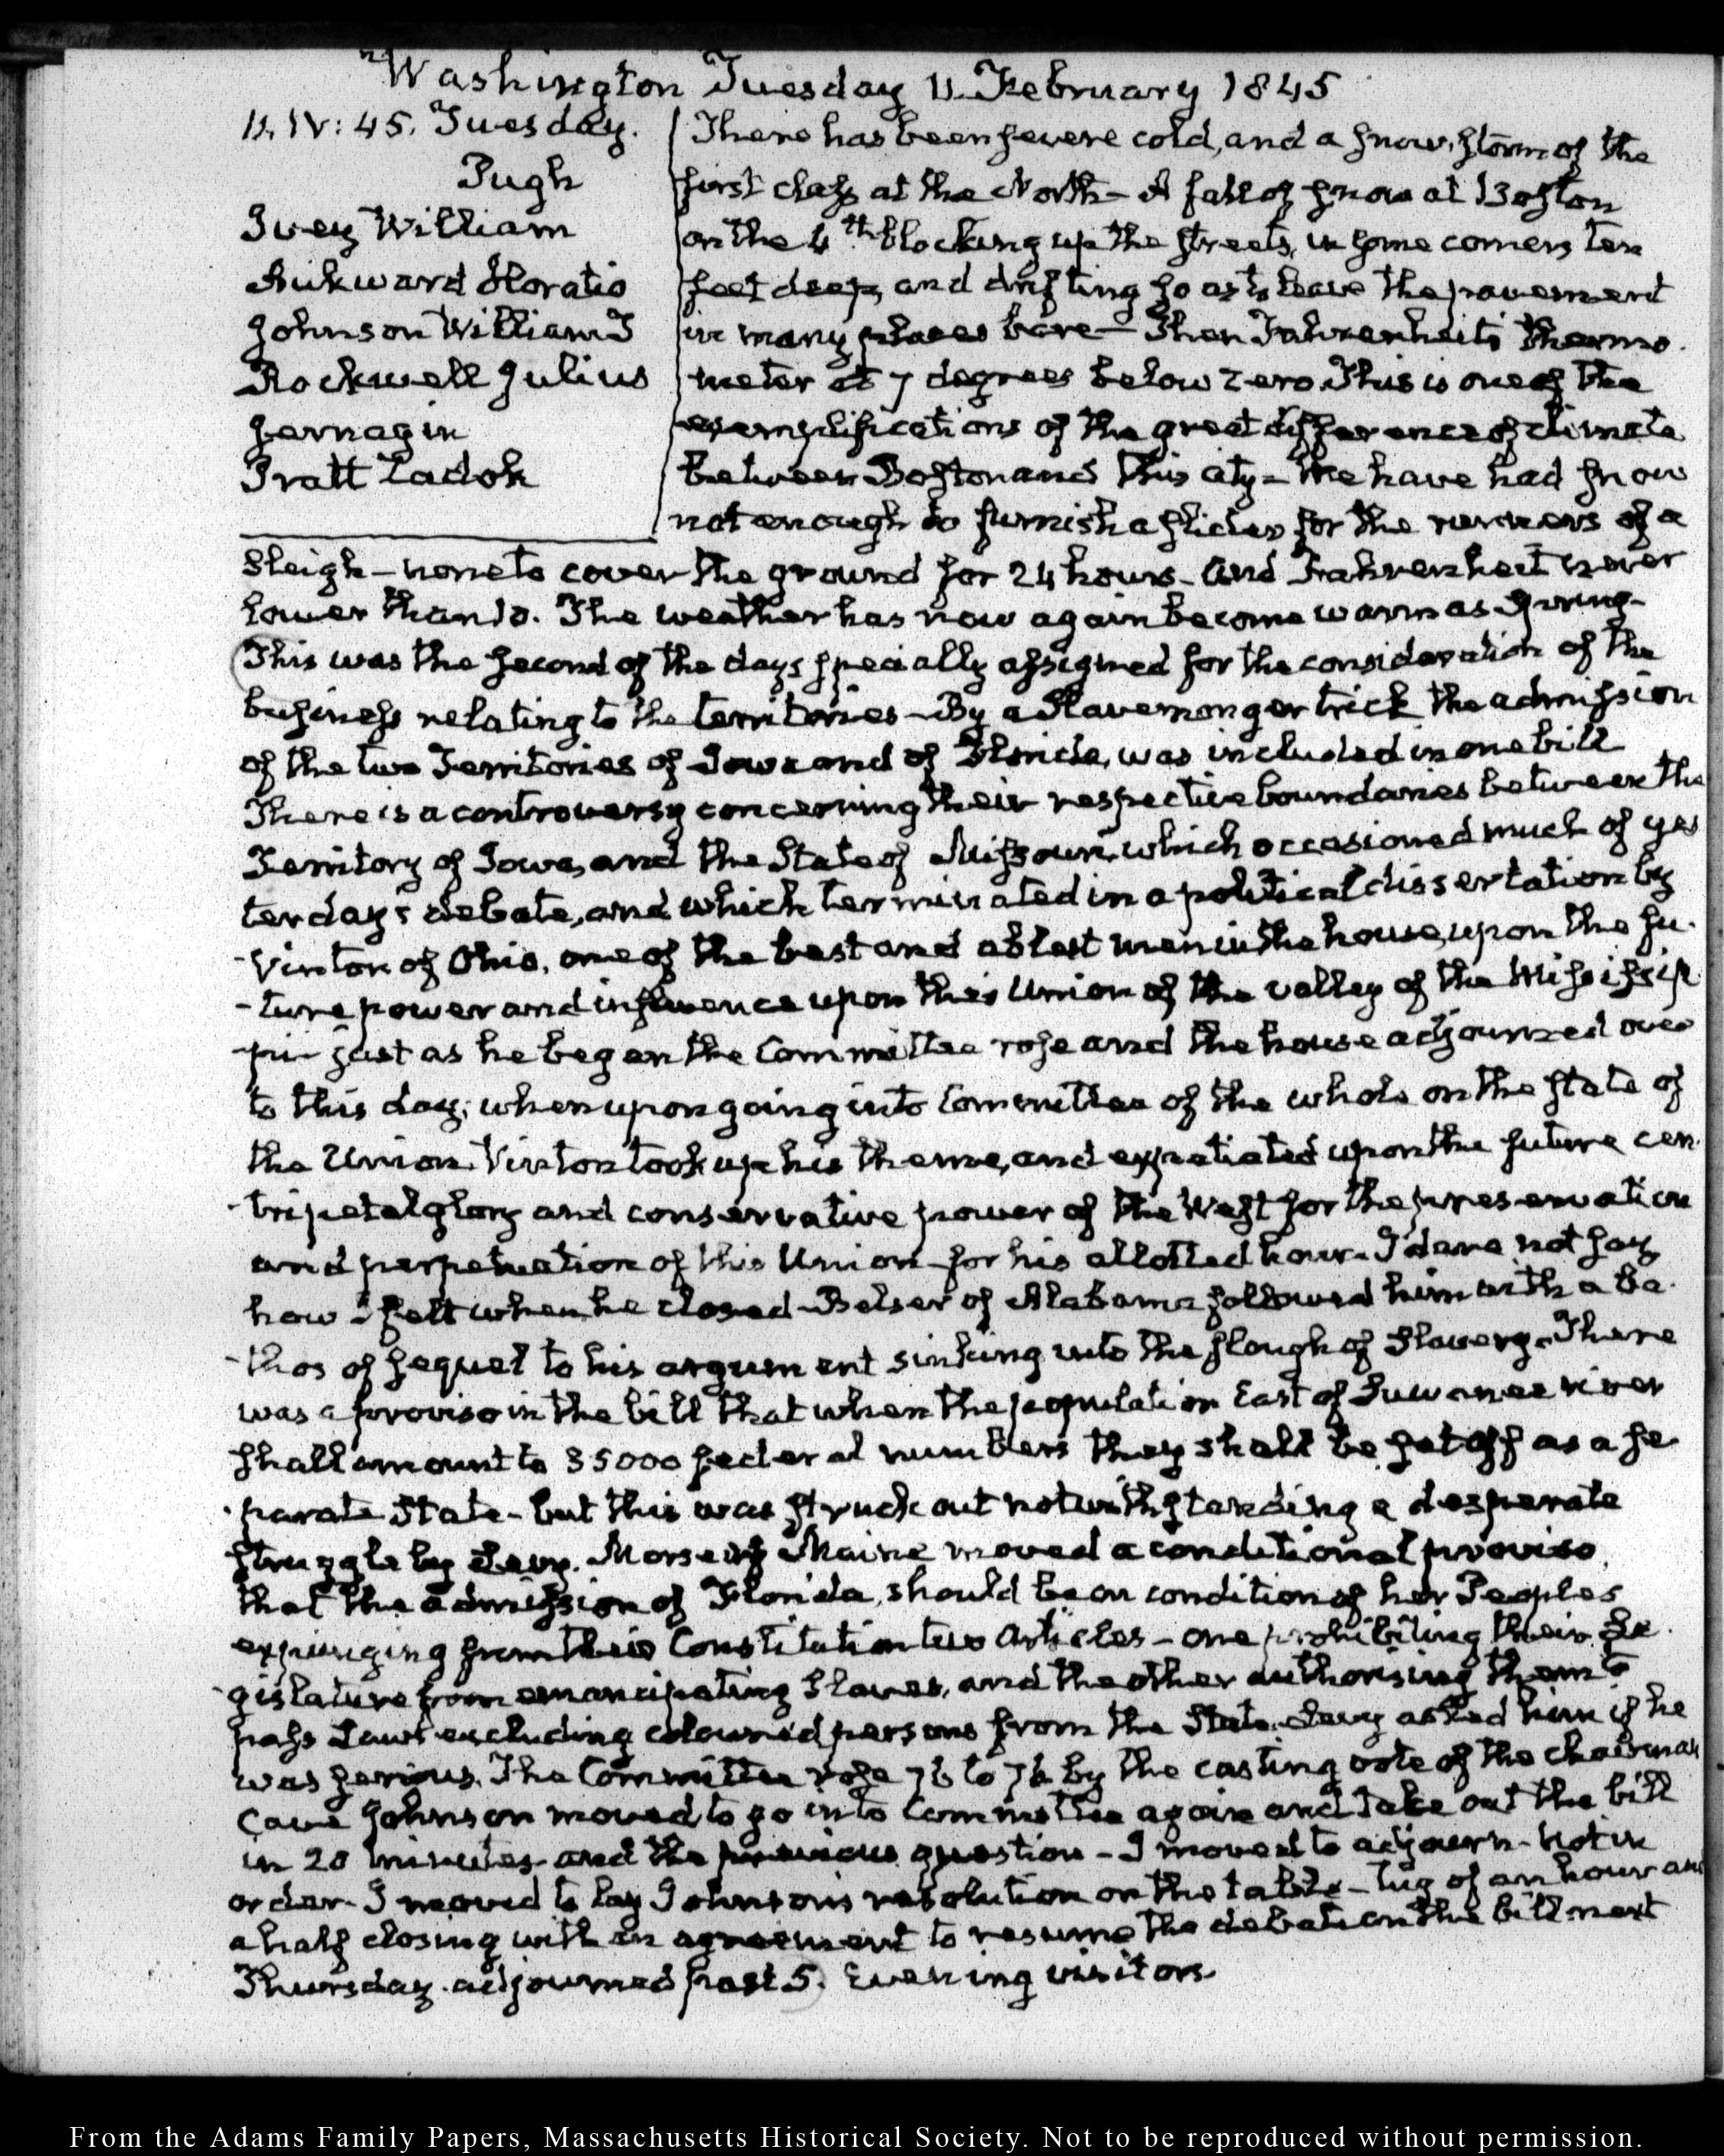 Washington Tuesday 11. February 1845
11. IV: 45. Tuesday.
Pugh
Ivey William
Horatio
Johnson William J
Rockwell Julius
Jarnagin
Pratt Zadok
There has been severe cold, and a snow, storm of the
first class at the North — A fall of snow at Boston
on the 4th blocking up the streets, in some corners ten
feet deep, and drifting so as to leave the pavement
in many places bare — Then Fahrenheit's thermo-
meter at 7 degrees below zero. This is one of the
exemplifications of the great difference of climate
between Boston and this city — We have had snow
not enough to furnish a slider for the runners of a
sleigh — none to cover the ground for 24 hours — and Fahrenheit never
lower than 10. The weather has now again become warm as Spring —
This was the second of the days specially assigned for the consideration of the
business relating to the territories — By a Slavemonger trick the admission
of the two Territories of Iowa and of Florida, was included in one bill
There is a controversy concerning their respective boundaries between the
Territory of Iowa, and the State of Missouri, which occasioned much of yes
terday's debate, and which terminated in a political dissertation by
Vinton of Ohio, one of the best and ablest men in the house, upon the fu-
-ture power and influence upon this Union of the valley of the Mississip
-pi — just as he began the Committee rose and the house adjourned over
to this day; when upon going into Committee of the whole on the state of
the Union, Vinton took up his theme, and expatiated upon the future cen-
-tripetal glory and conservative power of the West for the preservation
and perpetuation of this Union — for his allotted hour. I dare not say
how I felt when he closed — Belser of Alabama followed him with a ba-
-thos of sequel to his argument sinking into the slough of Slavery. There
was a proviso in the bill that when the population East of Suwanee river
shall amount to 35000 federal numbers they shall be set off as a se
-parate State — but this was struck out notwithstanding a desperate
struggle by Levy. Morse of Maine moved a conditional proviso,
that the admission of Florida, should be on condition of her Peoples
expunging from their Constitution two Articles — one prohibiting their Le-
-gislature from emancipating Slaves, and the other authorising them to
pass Laws excluding coloured persons from the State. Levy asked him if he
was serious. The Committee rose 76 to 76 by the casting vote of the chairman
Cave Johnson moved to go into Committee again and take out the bill
in 20 minutes and the previous question — I moved to adjourn — not in
order — I moved to lay Johnson's resolution on the table — tug of an hour and
a half closing with an agreement to resume the debate on the bill next
Thursday. adjourned past 5. Evening visitors.
From the Adams Family Papers, Massachusetts Historical Society. Not to be reproduced without permission.